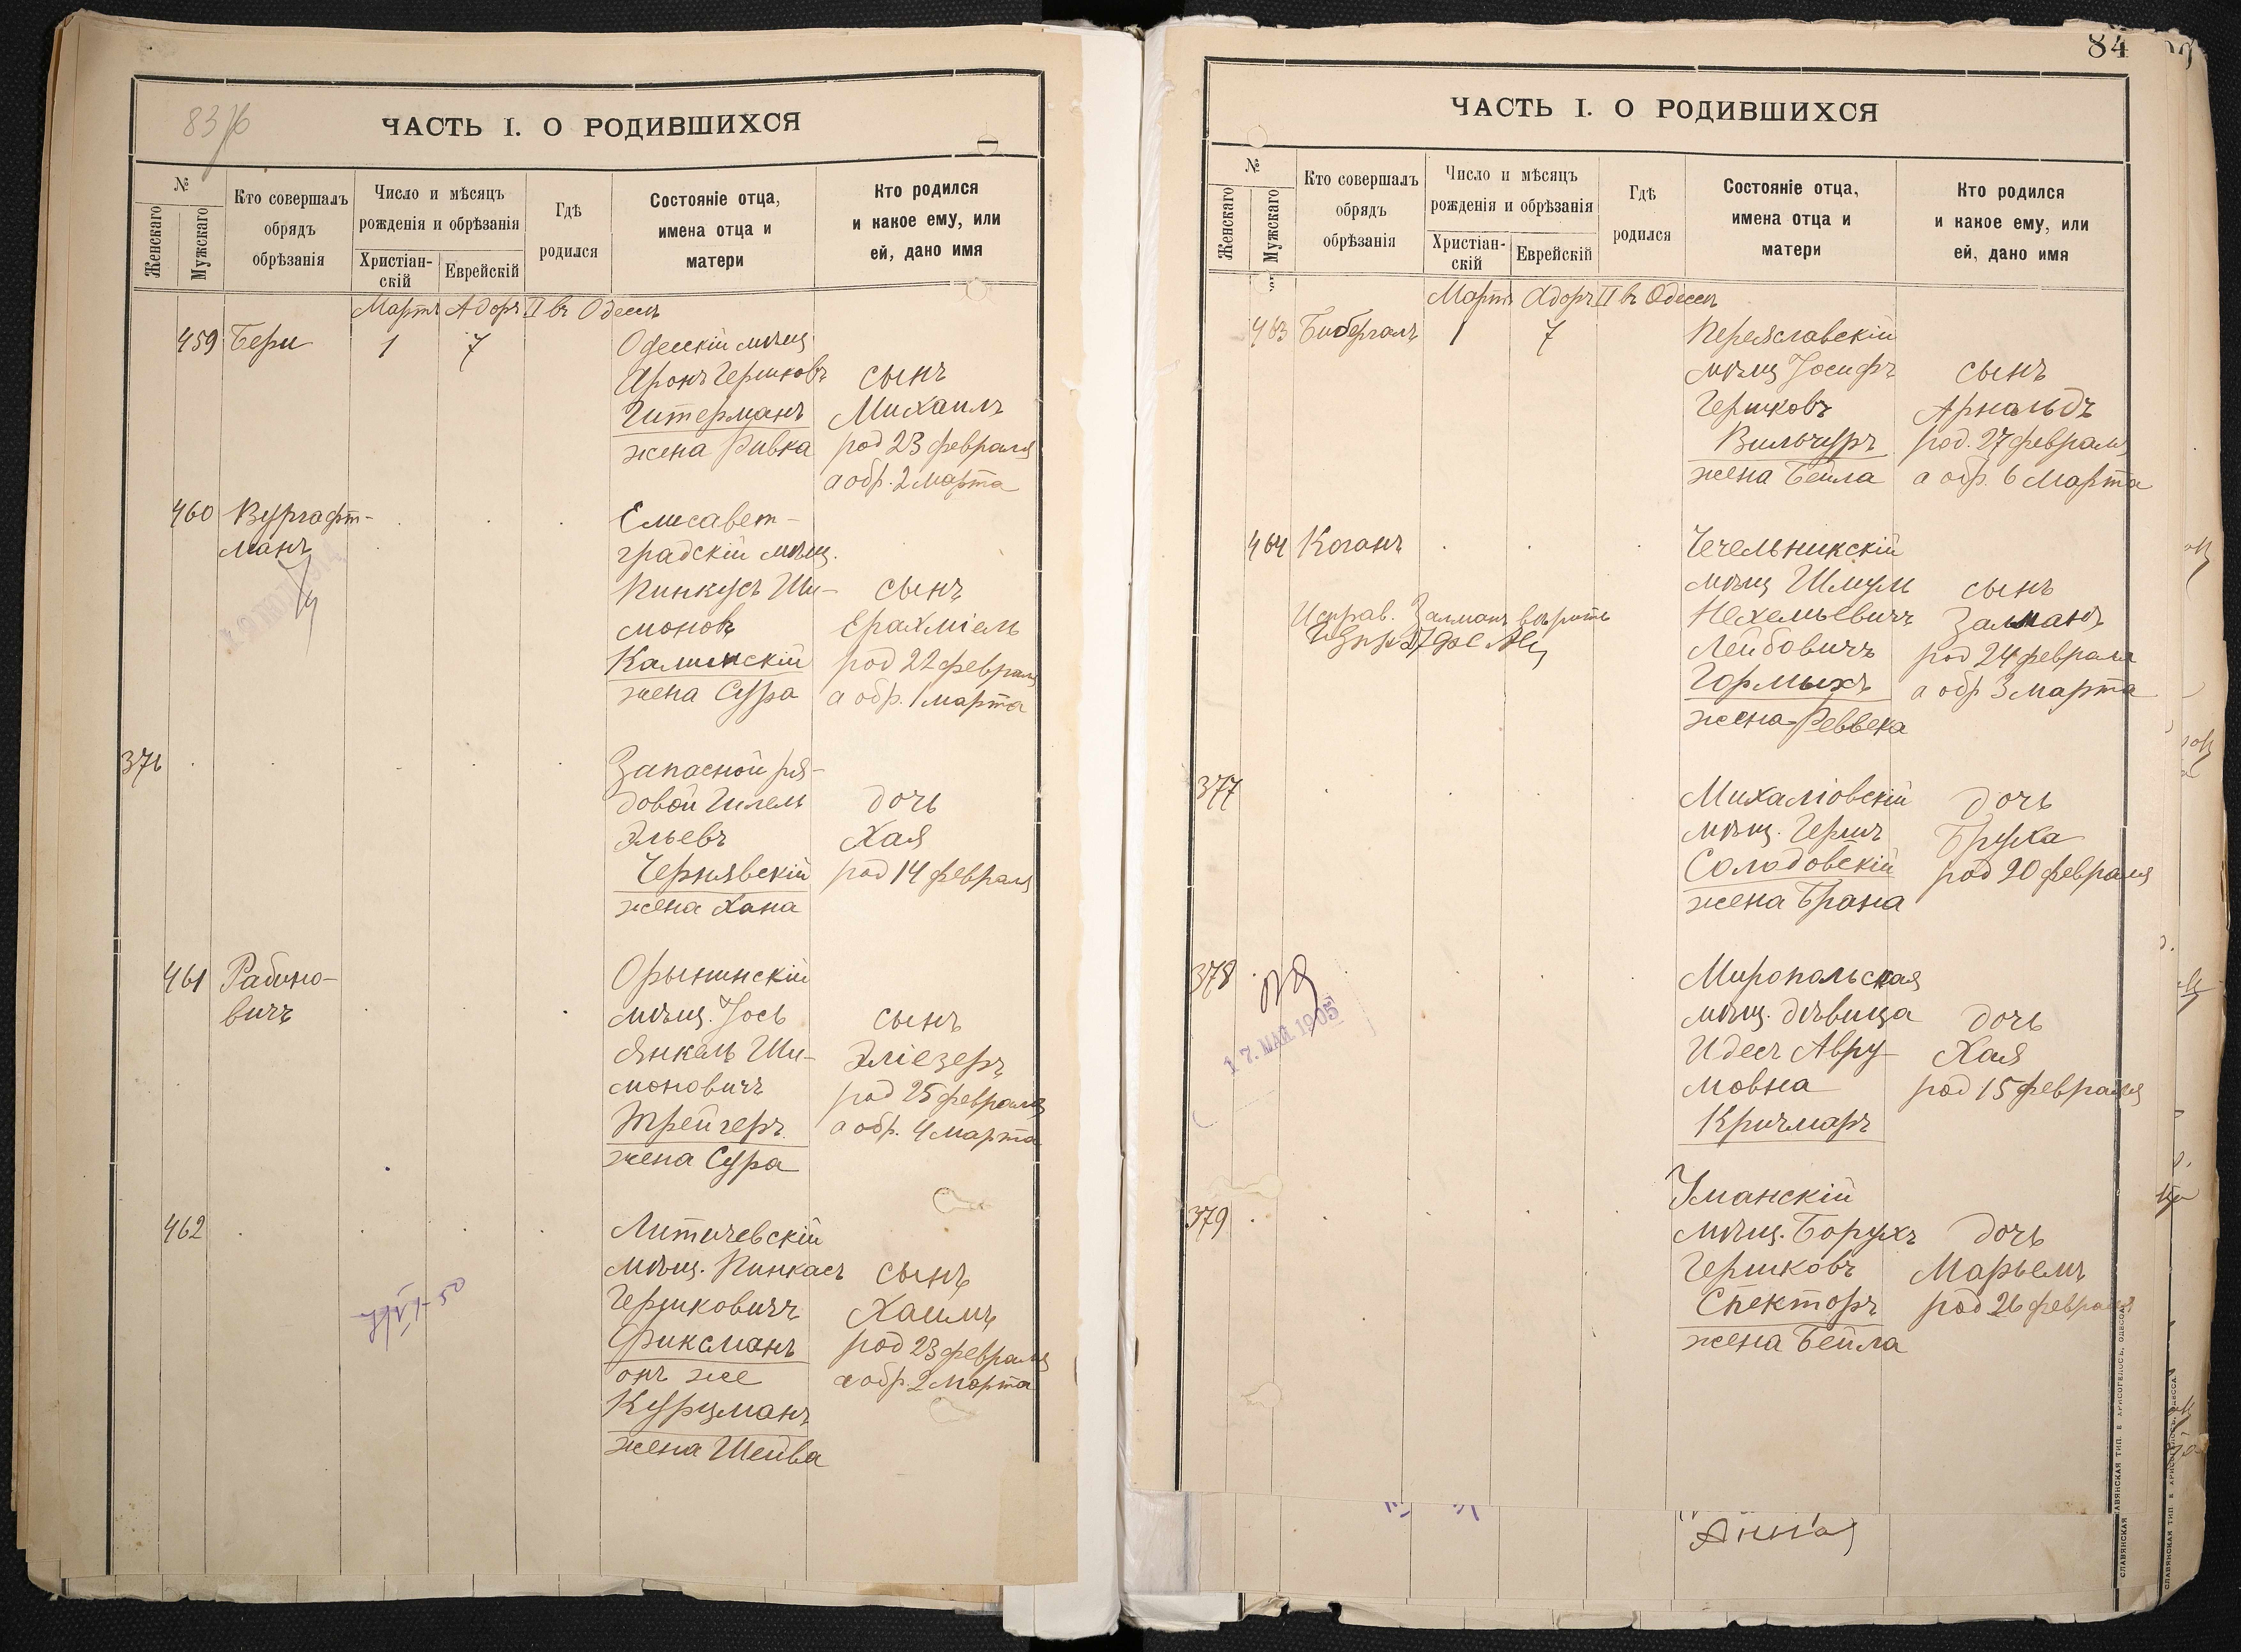 83 об
ЧАСТЬ I. О РОДИВШИХСЯ
№
Женскаго
Мужскаго
Кто совершалъ
обрядъ
обрѣзанія
Число и мѣсяцъ
рожденія и обрѣзанія
Христіан-
скій
Еврейскій
Гдѣ
родился
Состояніе отца,
имена отца и
матери
Кто родился
и какое ему, или
ей, дано имя
Мартъ Адоръ II въ Одессѣ
459 Бери 1 7 Одесскій мѣщ.
Аронъ Гершковъ сынъ
Гитерманъ Михаилъ
жена Ривка род 23 февраля
а обр. 2 марта
460 Вургафт- Елисавет-
манъ градскій мѣщ.
Пинкусъ Ши- сынъ
моновъ Ерахміель
Калинскій род 22 февраля
жена Сура а обр. 1 марта
376 Запасной ря-
довой Гилель дочь
Эльевъ Хая
Чернявскій род 14 февраля
жена Хана
461 Рабино- Орынинскій
вичъ мѣщ. Іось сынъ
Янкель Ши- Эліезеръ
моновичъ род 25 февраля
Трейгеръ а обр. 4 марта
жена Сура
462 Литичевскій
мѣщ. Пинкасъ сынъ
Гершковичъ Хаимъ
Фиксманъ род 23 февраля
онъ же а обр. 2 марта
Курцманъ
жена Шейва
84
ЧАСТЬ I. О РОДИВШИХСЯ
№
Женскаго
Мужскаго
Кто совершалъ
обрядъ
обрѣзанія
Число и мѣсяцъ
рожденія и обрѣзанія
Христіан-
скій
Еврейскій
Гдѣ
родился
Состояніе отца,
имена отца и
матери
Кто родился
и какое ему, или
ей, дано имя
Мартъ Адоръ II въ Одессѣ
463 Бибергалъ 1 7 Переяславскій
мѣщ Іосифъ сынъ
Гершковъ Арнальдъ
Вильчуръ род. 27 февраля
жена Бейла а обр. 6 Марта
464 Коганъ Чечельникскій
мѣщ Шмуль сынъ
Исправ. Залманъ вѣрить Нехемьевичъ Залманъ
Лейбовичъ род 24 февраля
Гормыхъ а обр 3 марта
жена Реввека
377 Михаліовскій дочь
мѣщ. Гершъ Бруха
Солодовскій род 20 февраля
жена Брана
378 Миропольская
мѣщ. дѣвица дочь
17. МАЯ 1905
Идесъ Авру- Хая
мовна род 15 февраля
Кричмаръ
Уманскій
379 мѣщ. Борухъ дочь
Гершковъ Марьемъ
Спекторъ род 26 февраля
жена Бейла